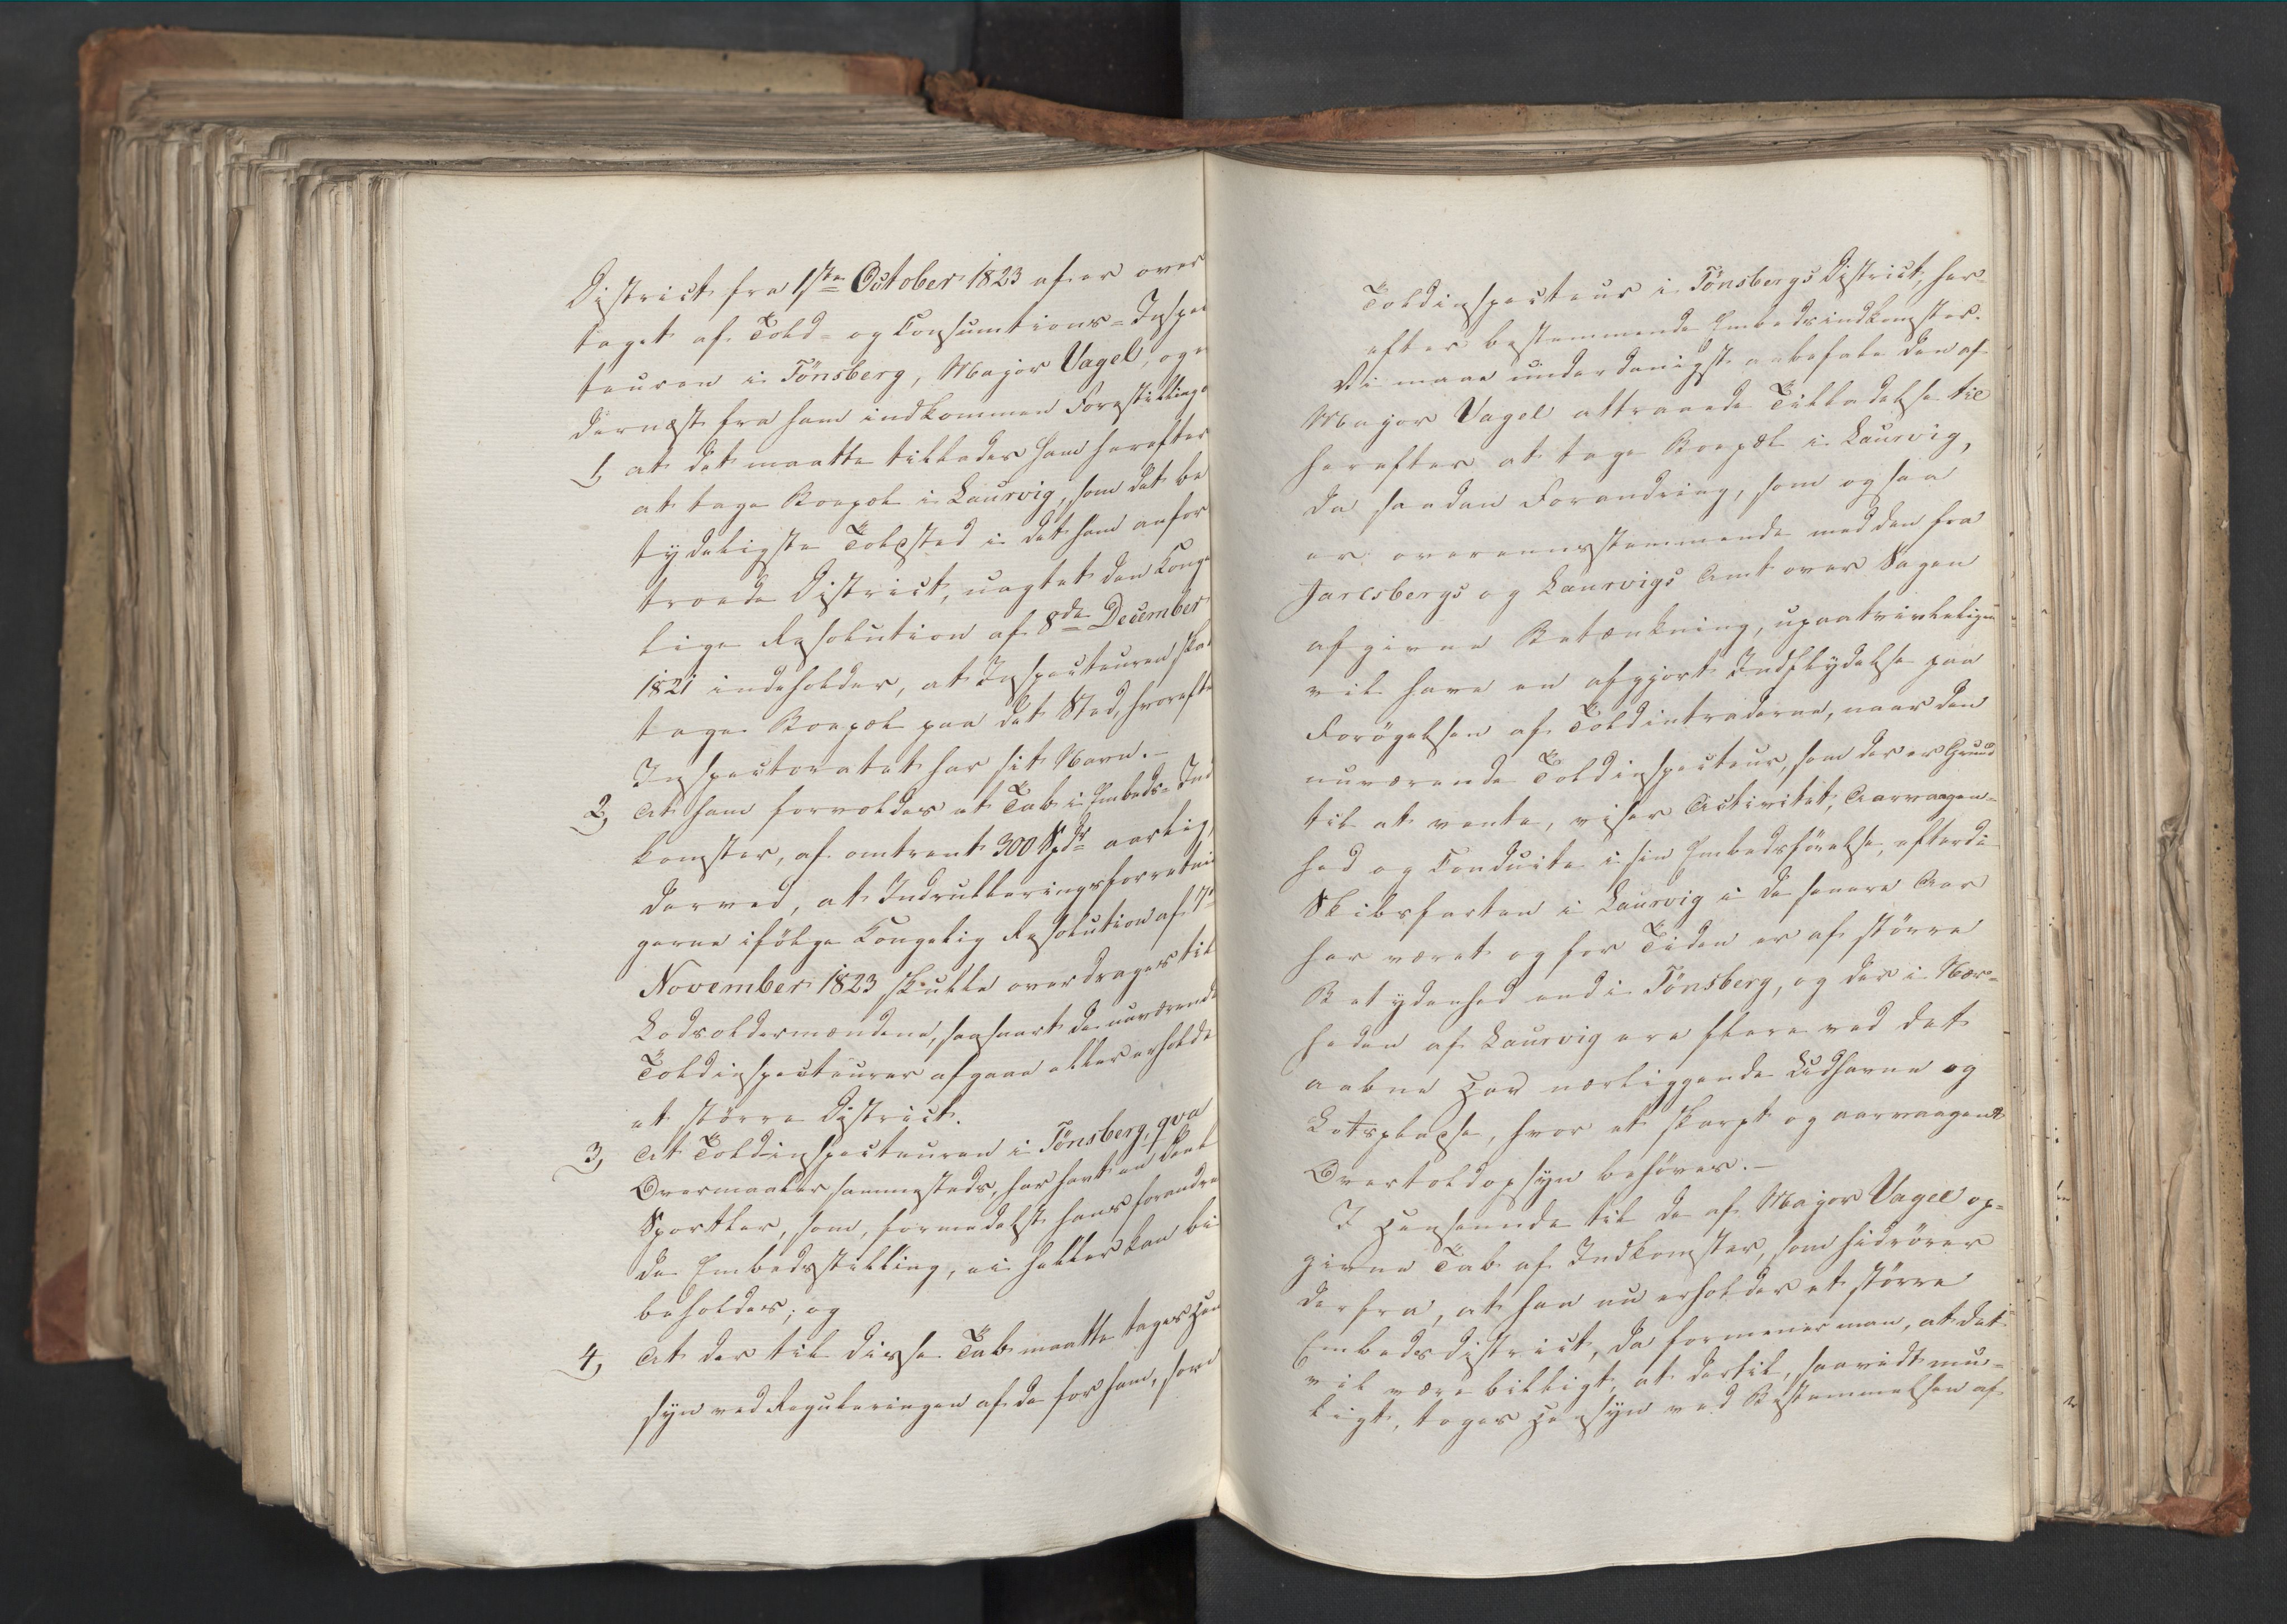 District fra 1ste October 1823 af er over
taget af Told- og Consumtions-Inspec
teuren i Tönsberg, Major Vagel, og er
dernæst fra ham indkommen Forestilling
1, at det maatte tillades ham herefter
at tage Boepæl i Laurvig, som det be
tydeligste Toldsted i det ham anfor
troede District, uagtet den Konge
lige Resolution af 8de December
1821 indeholder, at Inspecteuren skal
tage Boepæl paa det Sted, hvorefter
Inspectoratet har sit Navn.-
2, At ham forvoldes et Tab i Embeds-Ind
komster, af omtrent 300 Spdr aarlig,
derved, at Indrulleringsforretnin
gerne ifölge Kongelig Resolution af 7de
November 1823 skulle overdrages til
Lodsoldermændene, saasnart de nuværende
Toldinspecteurer afgaae eller erholde
et större District.
3, At Toldinspecteuren i Tönsberg, qva
Overmaaler sammesteds, har havt en Deel
Sportler, som, formedelst hans forandre
de Embedsstilling, ei heller kan bi
beholdes; og
4, At der til disse Tab maatte tages Hen
syn ved Reguleringen af de for ham, som
Toldinspecteur i Tönsbergs District, her-
efter bestemmende Embedsindkomster.
Vi maae underdanigst anbefale den af
Major Vagel attraaede Tilladelse til
herefter at tage Boepæl i Laurvig,
da saadan Forandring, som ogsaa
er overeensstemmende med den fra
Jarlsbergs og Laurvigs Amt over Sagen
afgivne Betænkning, upaatvivlelig
vil have en afgjort Indflydelse paa
Forögelsen af Toldintraderne, naar den
nuværende Toldinspecteur, som der er Grund
til at vente, viser Activitet, Aarvaagen-
hed og Conduite i sin Embedsförelse, efterdi
Skibsfarten i Laurvig i de senere Aar
har været og for Tiden er af större
Betydenhed end i Tönsberg, og der i Nær-
heden af Laurvig ere flere ved det
aabne Hav nærliggende Udhavne og
Ladspladse, hvor et skarpt og aarvaagent
Overtoldopsyn behöves.-
I Henseende til de af Major Vagel op-
givne Tab af Indkomster, som hidrörer
derfra, at han nu erholder et större
Embedsdistrict, da formener man, at det
vil være billigt, at dertil, saavidt mu-
ligt, tages Hensyn ved Bestemmelsen af